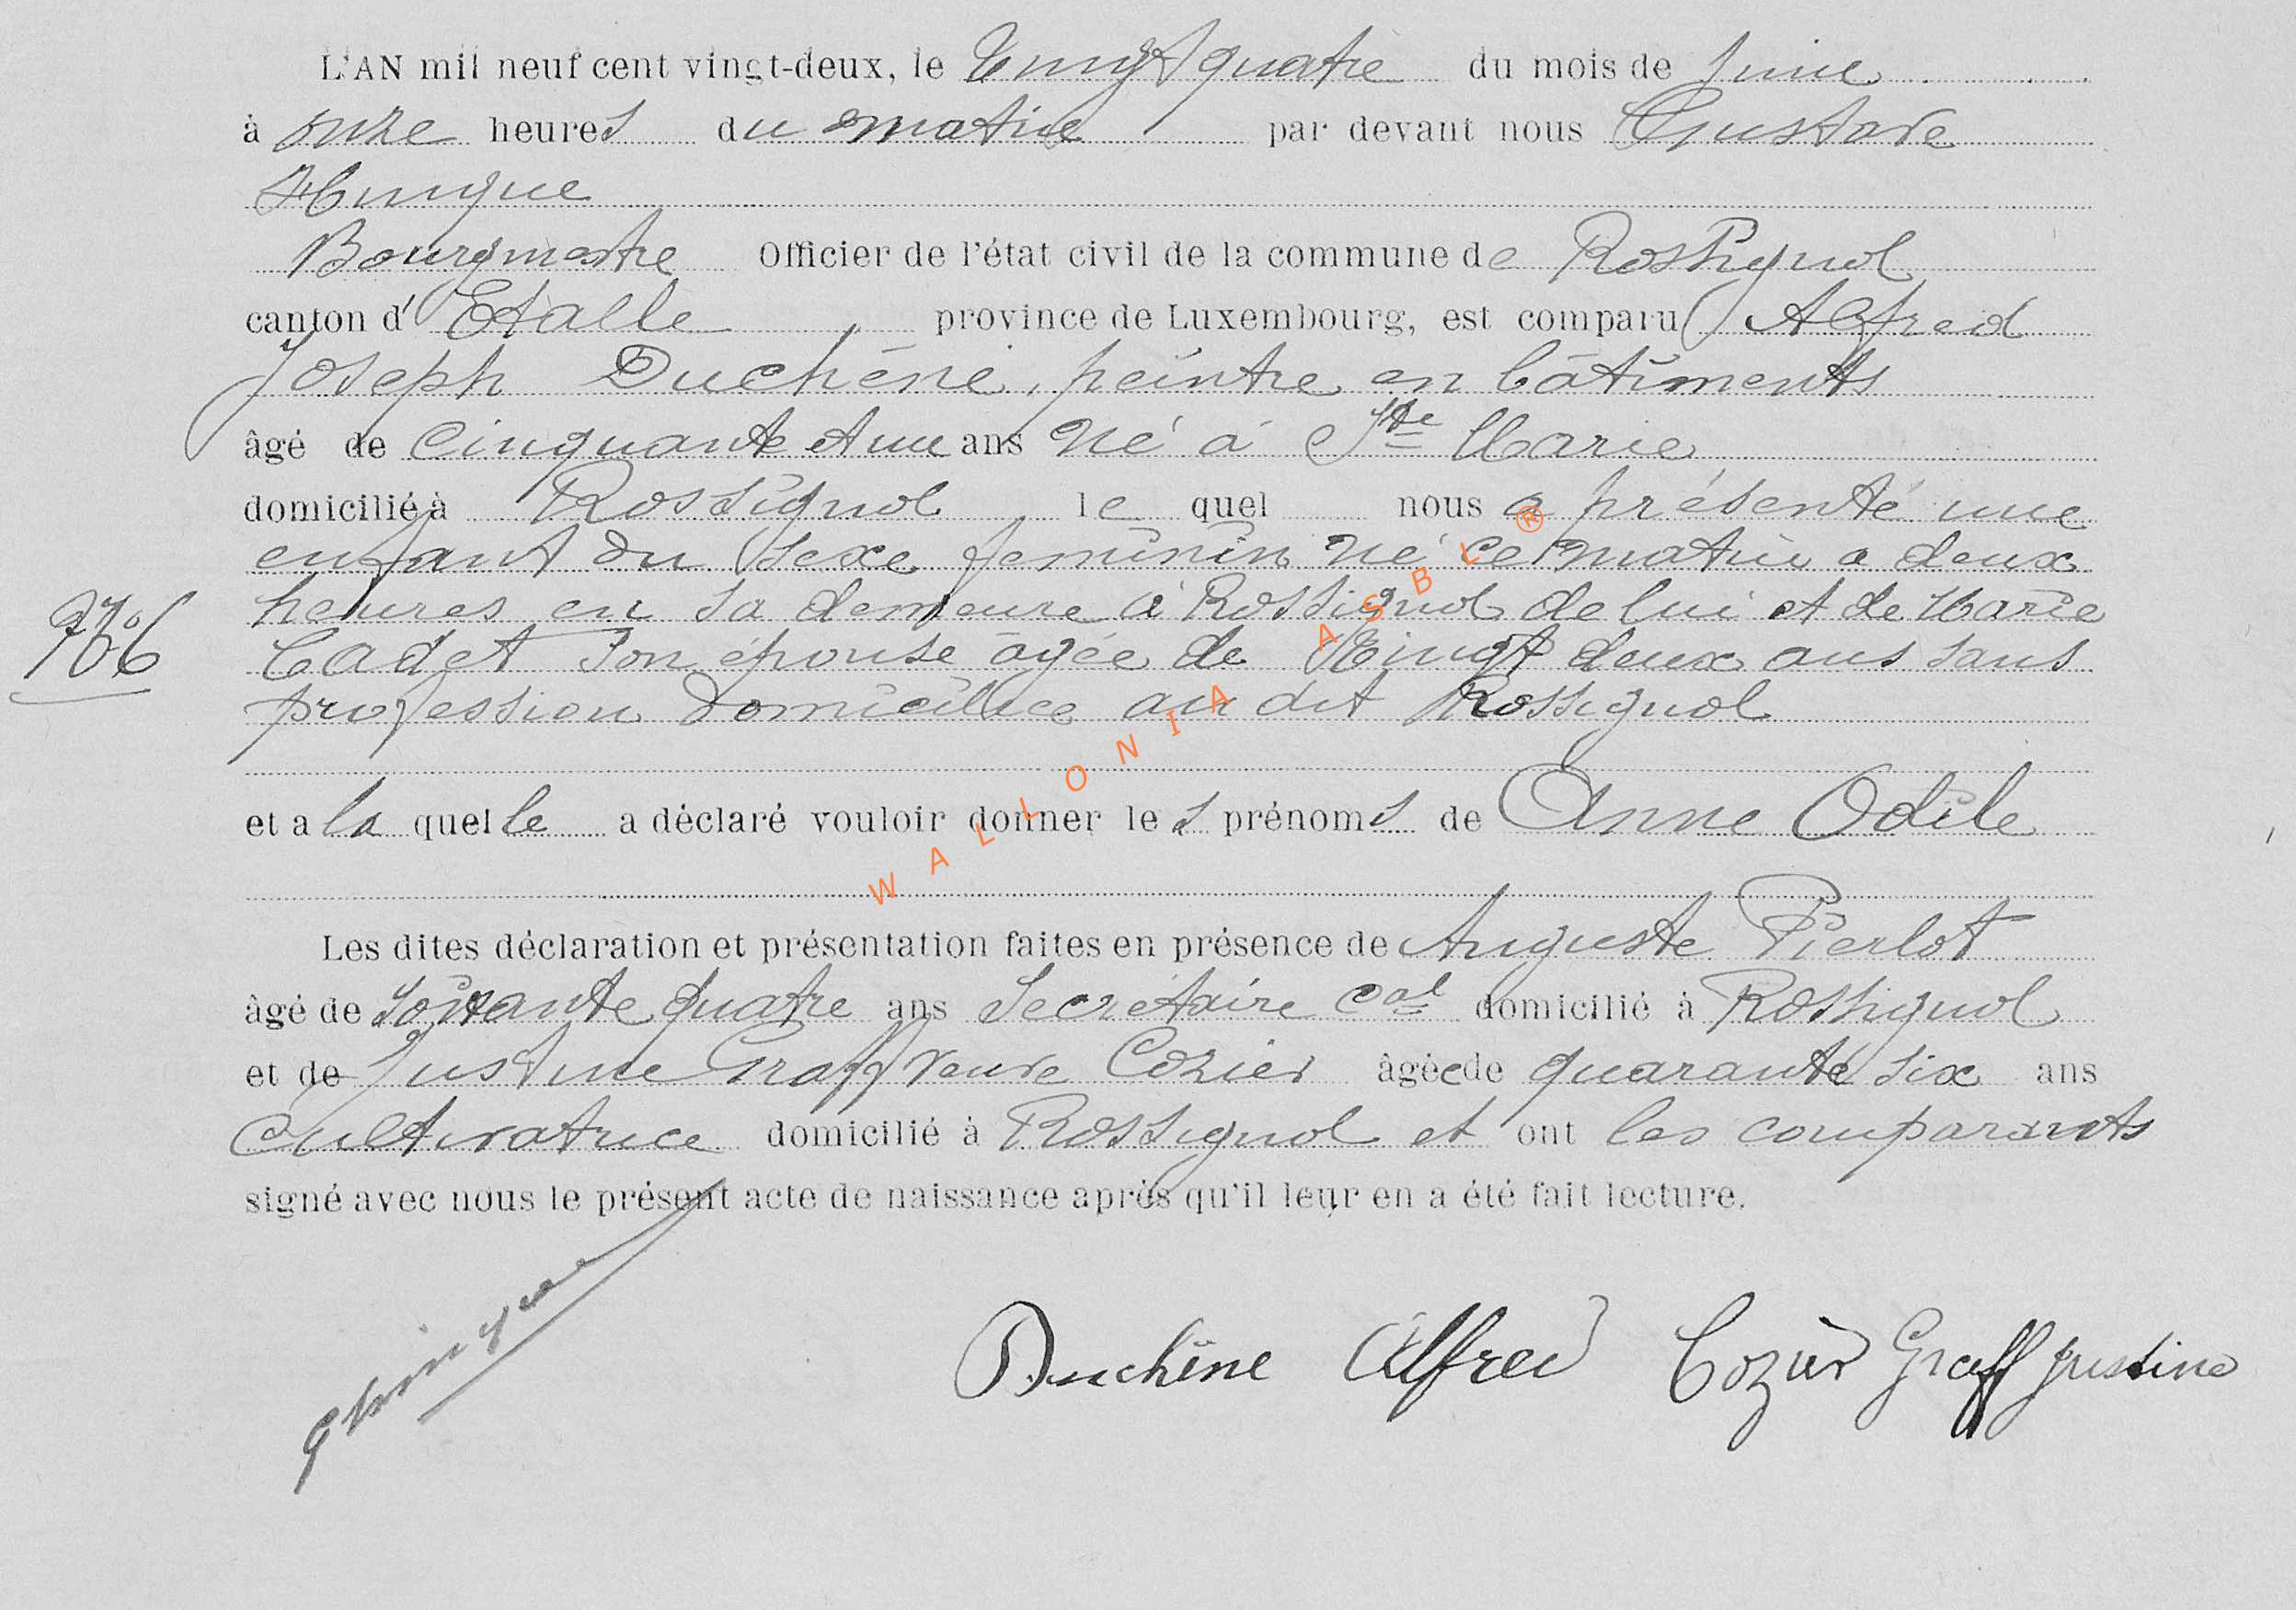 L'AN mil neuf cent vingt-deux, le Vingt quatre du mois de Juin
à onze heures du matin par devant nous Gustave
Hunique
Bourgmestre Officier de l'état civil de la commune de Rossignol
canton d' Etalle province de Luxembourg, est comparu Alfred
Joseph Duchêne, peintre en bâtiments
âgé de cinquante et un ans né à Ste Marie
domicilié à Rossignol le quel nous a présenté une
enfant du sexe feminin né ce matin a deux
heures en sa demeure à Rossignol de lui et de Marie
Cadet son épouse âgée de Vingt deux ans sans
profession domiciliée au dit Rossignol
et a la quel le a déclaré vouloir donner le s prénoms de Anne Odile
Les dites déclaration et présentation faites en présence de Auguste Pierlot
âgé de soixante quatre ans Secrétaire cal domicilié à Rossignol
et de Justine Graff veuve Cozier âgée de quarante six ans
cultivatrice domicilié à Rossignol et ont les comparants
signé avec nous le présent acte de naissance après qu'il leur en a été fait lecture.
Duchêne Alfred Cozier Graff Justine
WALLONIA ASBL ®